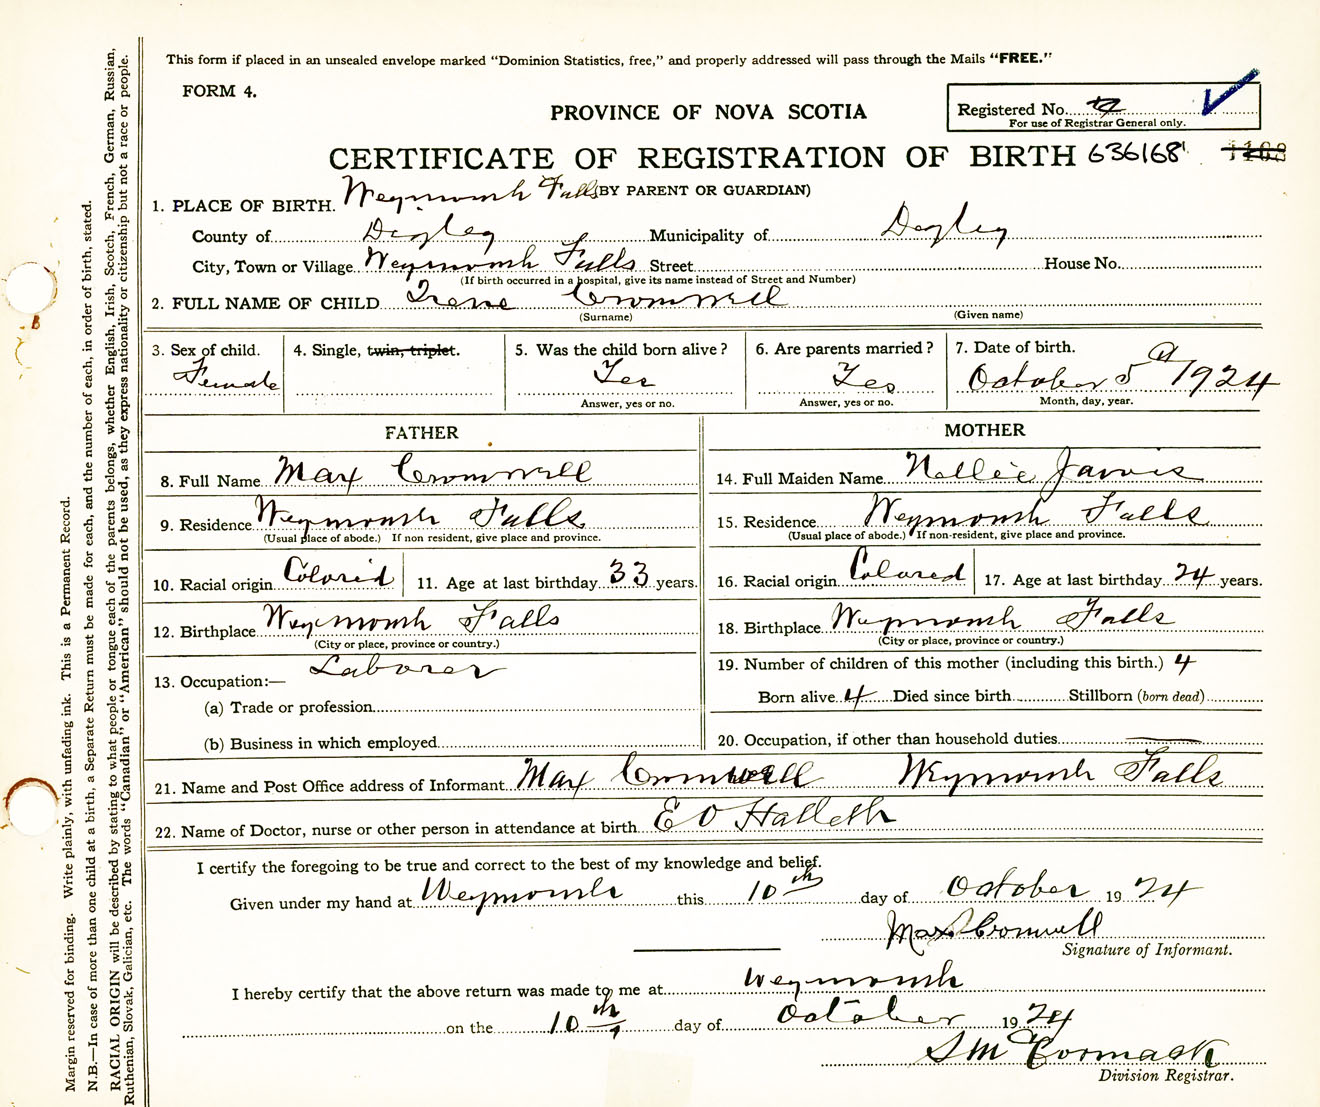 This form if placed in an unsealed envelope marked "Dominion Statistics, free," and properly addressed will pass through the Mails "FREE."
FORM 4.
Registered No.
For use of Registrar General only.
PROVINCE OF NOVA SCOTIA
CERTIFICATE OF REGISTRATION OF BIRTH 636168
(BY PARENT OR GUARDIAN)
1. PLACE OF BIRTH. Weymouth Falls
County of Digby Municipality of Digby
City, Town or Village Weymouth Falls Street House No.
(If birth occurred in a hospital, give its name instead of Street and Number)
2. FULL NAME OF CHILD Irene Cromwell
(Surname) (Given name)
3. Sex of child. 4. Single, twin, triplet. 5. Was the child born alive? 6. Are parents married? 7. Date of birth.
Female Yes Yes October 5th 1924
Answer, yes or no. Answer, yes or no. Month, day, year.
FATHER
8. Full Name Max Cromwell
9. Residence Weymouth Falls
(Usual place of abode.) If non resident, give place and province.
10. Racial origin Colored 11. Age at last birthday 33 years.
12. Birthplace Weymouth Falls
(City or place, province or country.)
13. Occupation:— Laborer
(a) Trade or profession
(b) Business in which employed
MOTHER
14. Full Maiden Name Nellie Jarvis
15. Residence Weymouth Falls
(Usual place of abode.) If non-resident, give place and province.
16. Racial origin Colored 17. Age at last birthday 24 years.
18. Birthplace Weymouth Falls
(City or place, province or country.)
19. Number of children of this mother (including this birth.) 4
Born alive 4 Died since birth Stillborn (born dead)
20. Occupation, if other than household duties
21. Name and Post Office address of Informant Max Cromwell Weymouth Falls
22. Name of Doctor, nurse or other person in attendance at birth E O Halleth
I certify the foregoing to be true and correct to the best of my knowledge and belief.
Given under my hand at Weymouth this 10th day of October 1924
Max Cromwell
Signature of Informant.
I hereby certify that the above return was made to me at Weymouth
on the 10th day of October 1924
S McCormack
Division Registrar.
Margin reserved for binding. Write plainly, with unfading ink. This is a Permanent Record.
N.B.—In case of more than one child at a birth, a Separate Return must be made for each, and the number of each, in order of birth, stated.
RACIAL ORIGIN will be described by stating to what people or tongue each of the parents belongs, whether English, Irish, Scotch, French, German, Russian,
Ruthenian, Slovak, Galician, etc. The words "Canadian" or "American" should not be used, as they express nationality or citizenship but not a race or people.